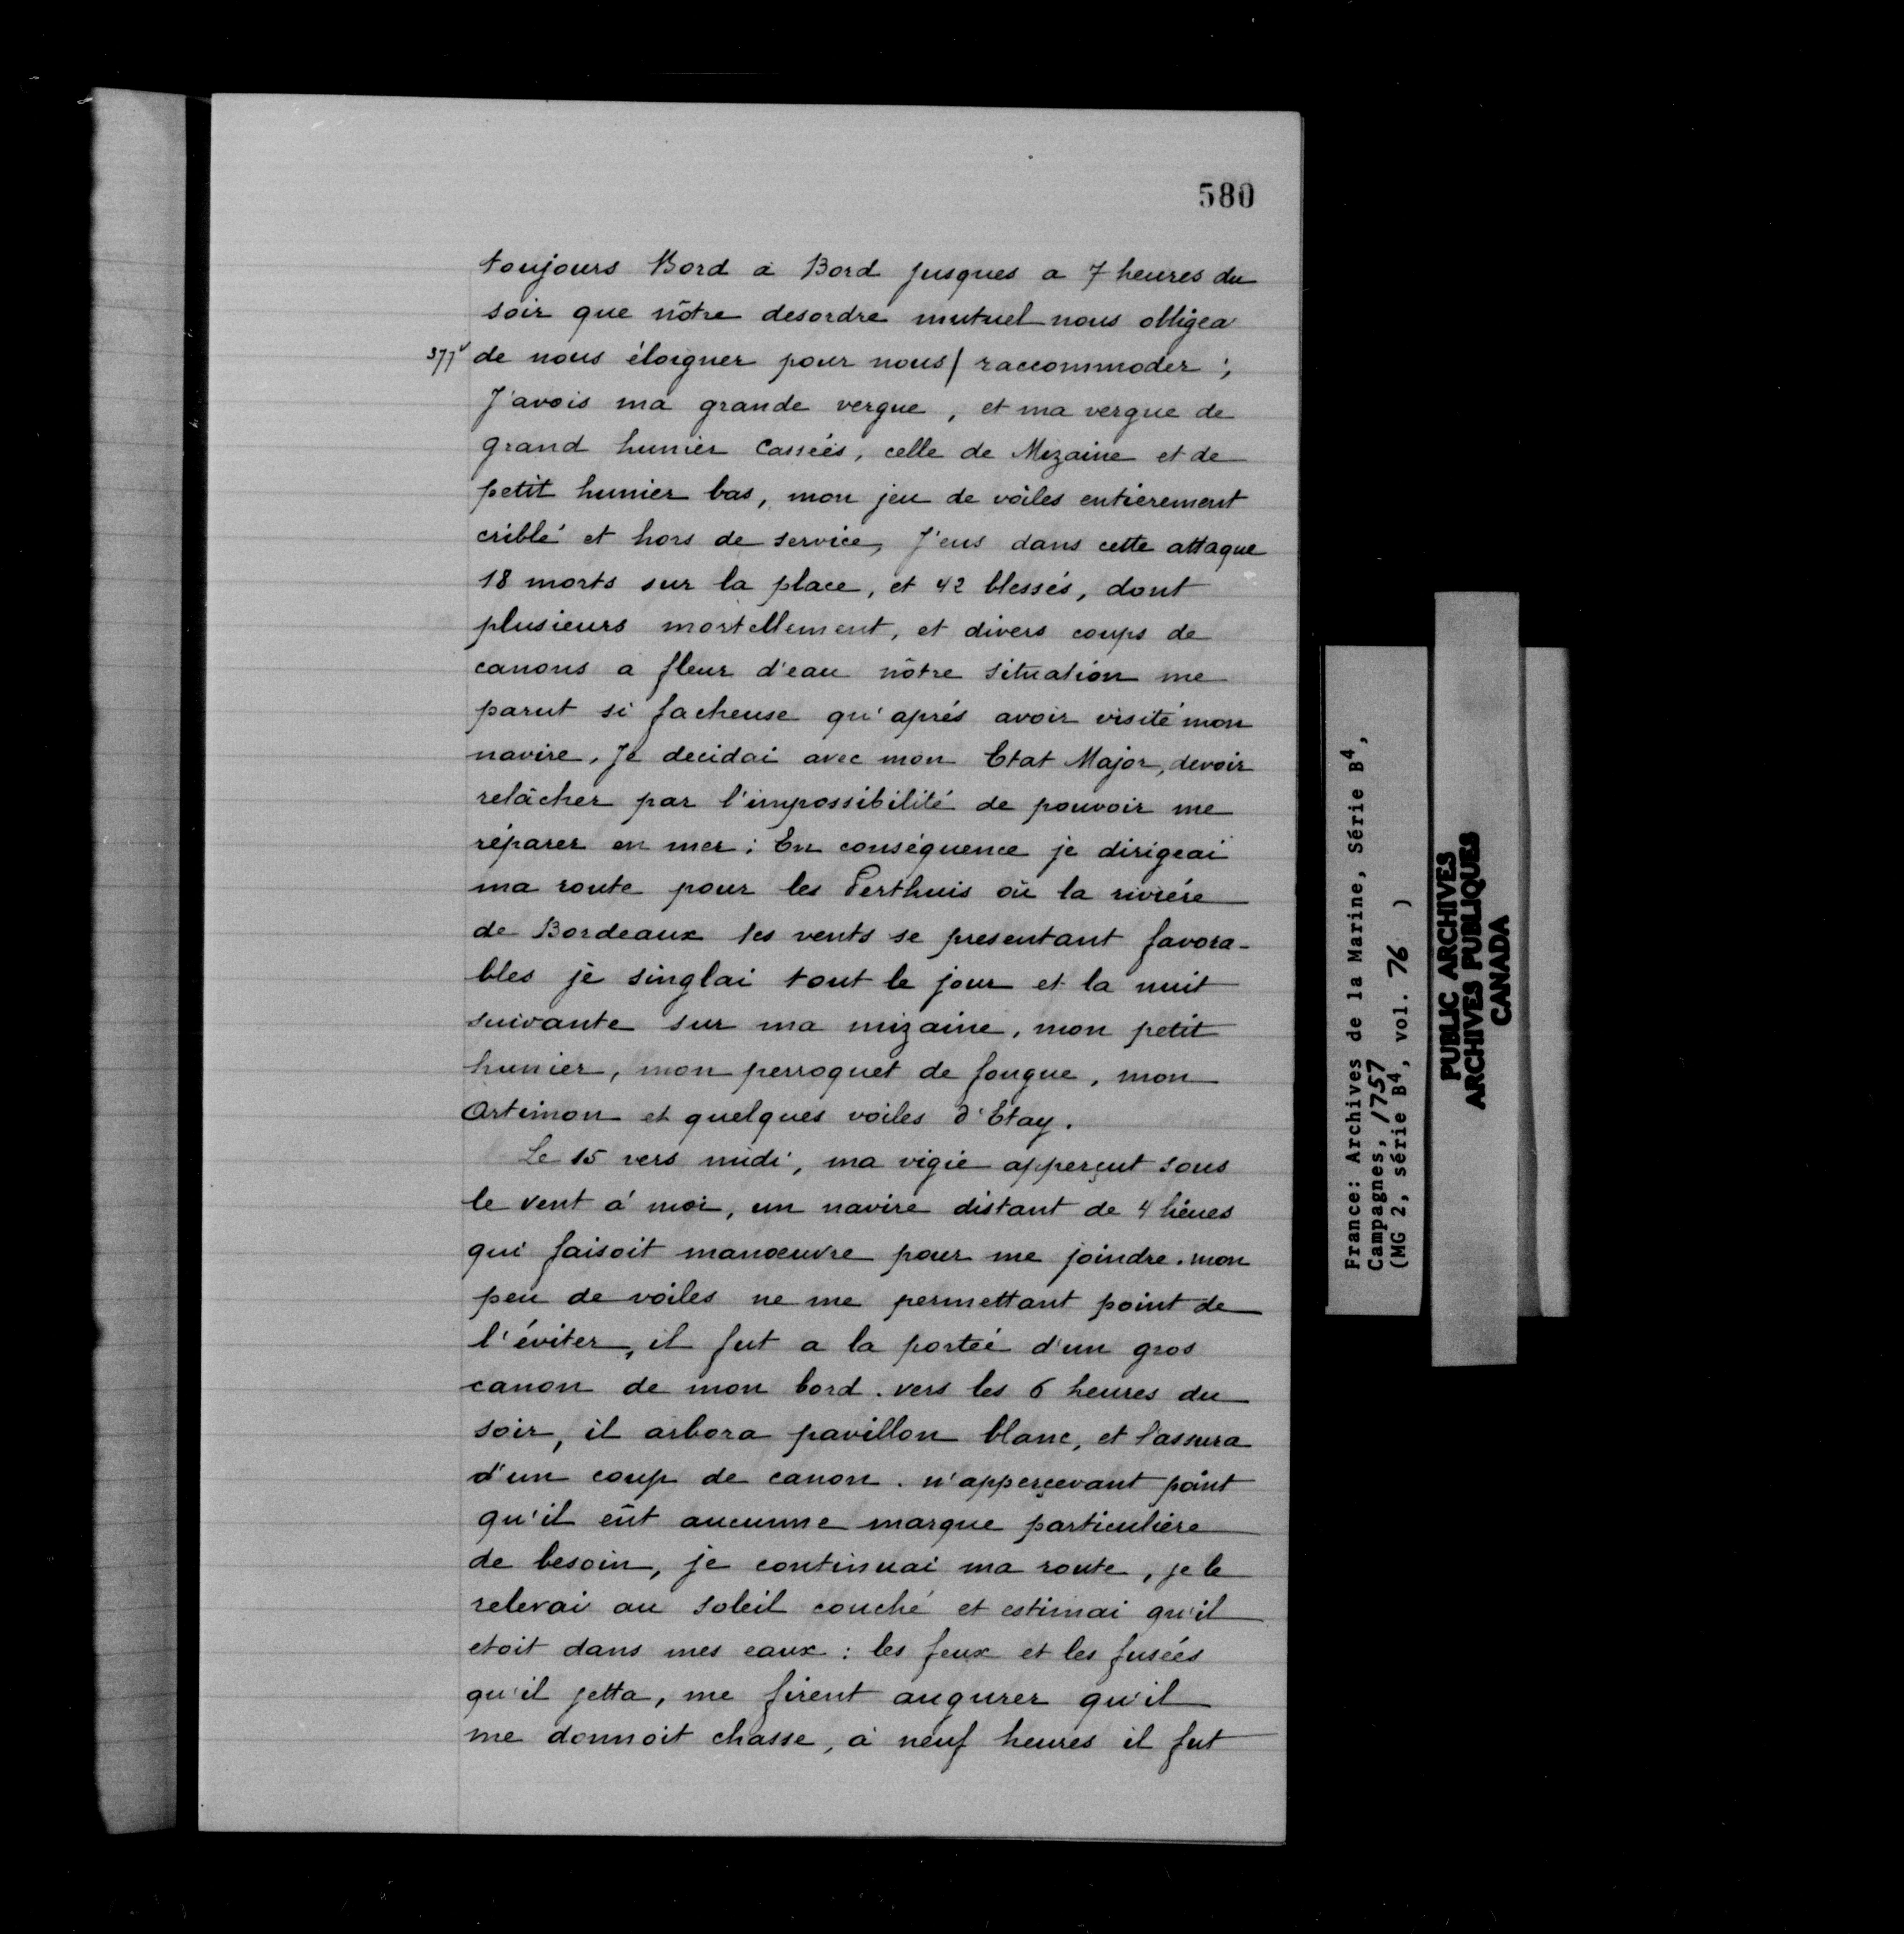 580
toujours Bord à Bord jusques a 7 heures du
soir que nôtre desordre mutuel nous obligea
377v de nous éloigner pour nous/ raccommoder ;
J'avois ma grande vergue, et ma vergue de
grand hunier Cassées, celle de Mizaine et de
petit hunier bas, mon jeu de voiles entierement
criblé et hors de service, J'eus dans cette attaque
18 morts sur la place, et 42 blessés, dont
plusieurs mortellement, et divers coups de
canons a fleur d'eau nôtre situation me
parut si facheuse qu'aprés avoir visité mon
navire, Je decidai avec mon Etat Major, devoir
relâcher par l'impossibilité de pouvoir me
réparer en mer : En conséquence je dirigeai
ma route pour les Perthuis où la riviére
de Bordeaux les vents se presentant favora-
bles je singlai tout le jour et la nuit
suivante sur ma mizaine, mon petit
hunier, mon perroquet de fougue, mon
Artimon et quelques voiles d'Etay.
Le 15 vers midi, ma vigie apperçut sous
le vent à moi, un navire distant de 4 lieues
qui faisoit manœuvre pour me joindre. mon
peu de voiles ne me permettant point de
l'éviter, il fut a la portée d'un gros
canon de mon bord. vers les 6 heures du
soir, il arbora pavillon blanc, et l'assura
d'un coup de canon. n'apperçevant point
qu'il eût aucunne marque particuliére
de besoin, je continuai ma route, je le
relevai au soleil couché et estimai qu'il
etoit dans mes eaux : les feux et les fusées
qu'il jetta, me firent augurer qu'il
me donnoit chasse, à neuf heures il fut
France: Archives de la Marine, Série B4,
Campagnes, 1757
(MG 2, série B4, vol. 76 )
PUBLIC ARCHIVES
ARCHIVES PUBLIQUES
CANADA